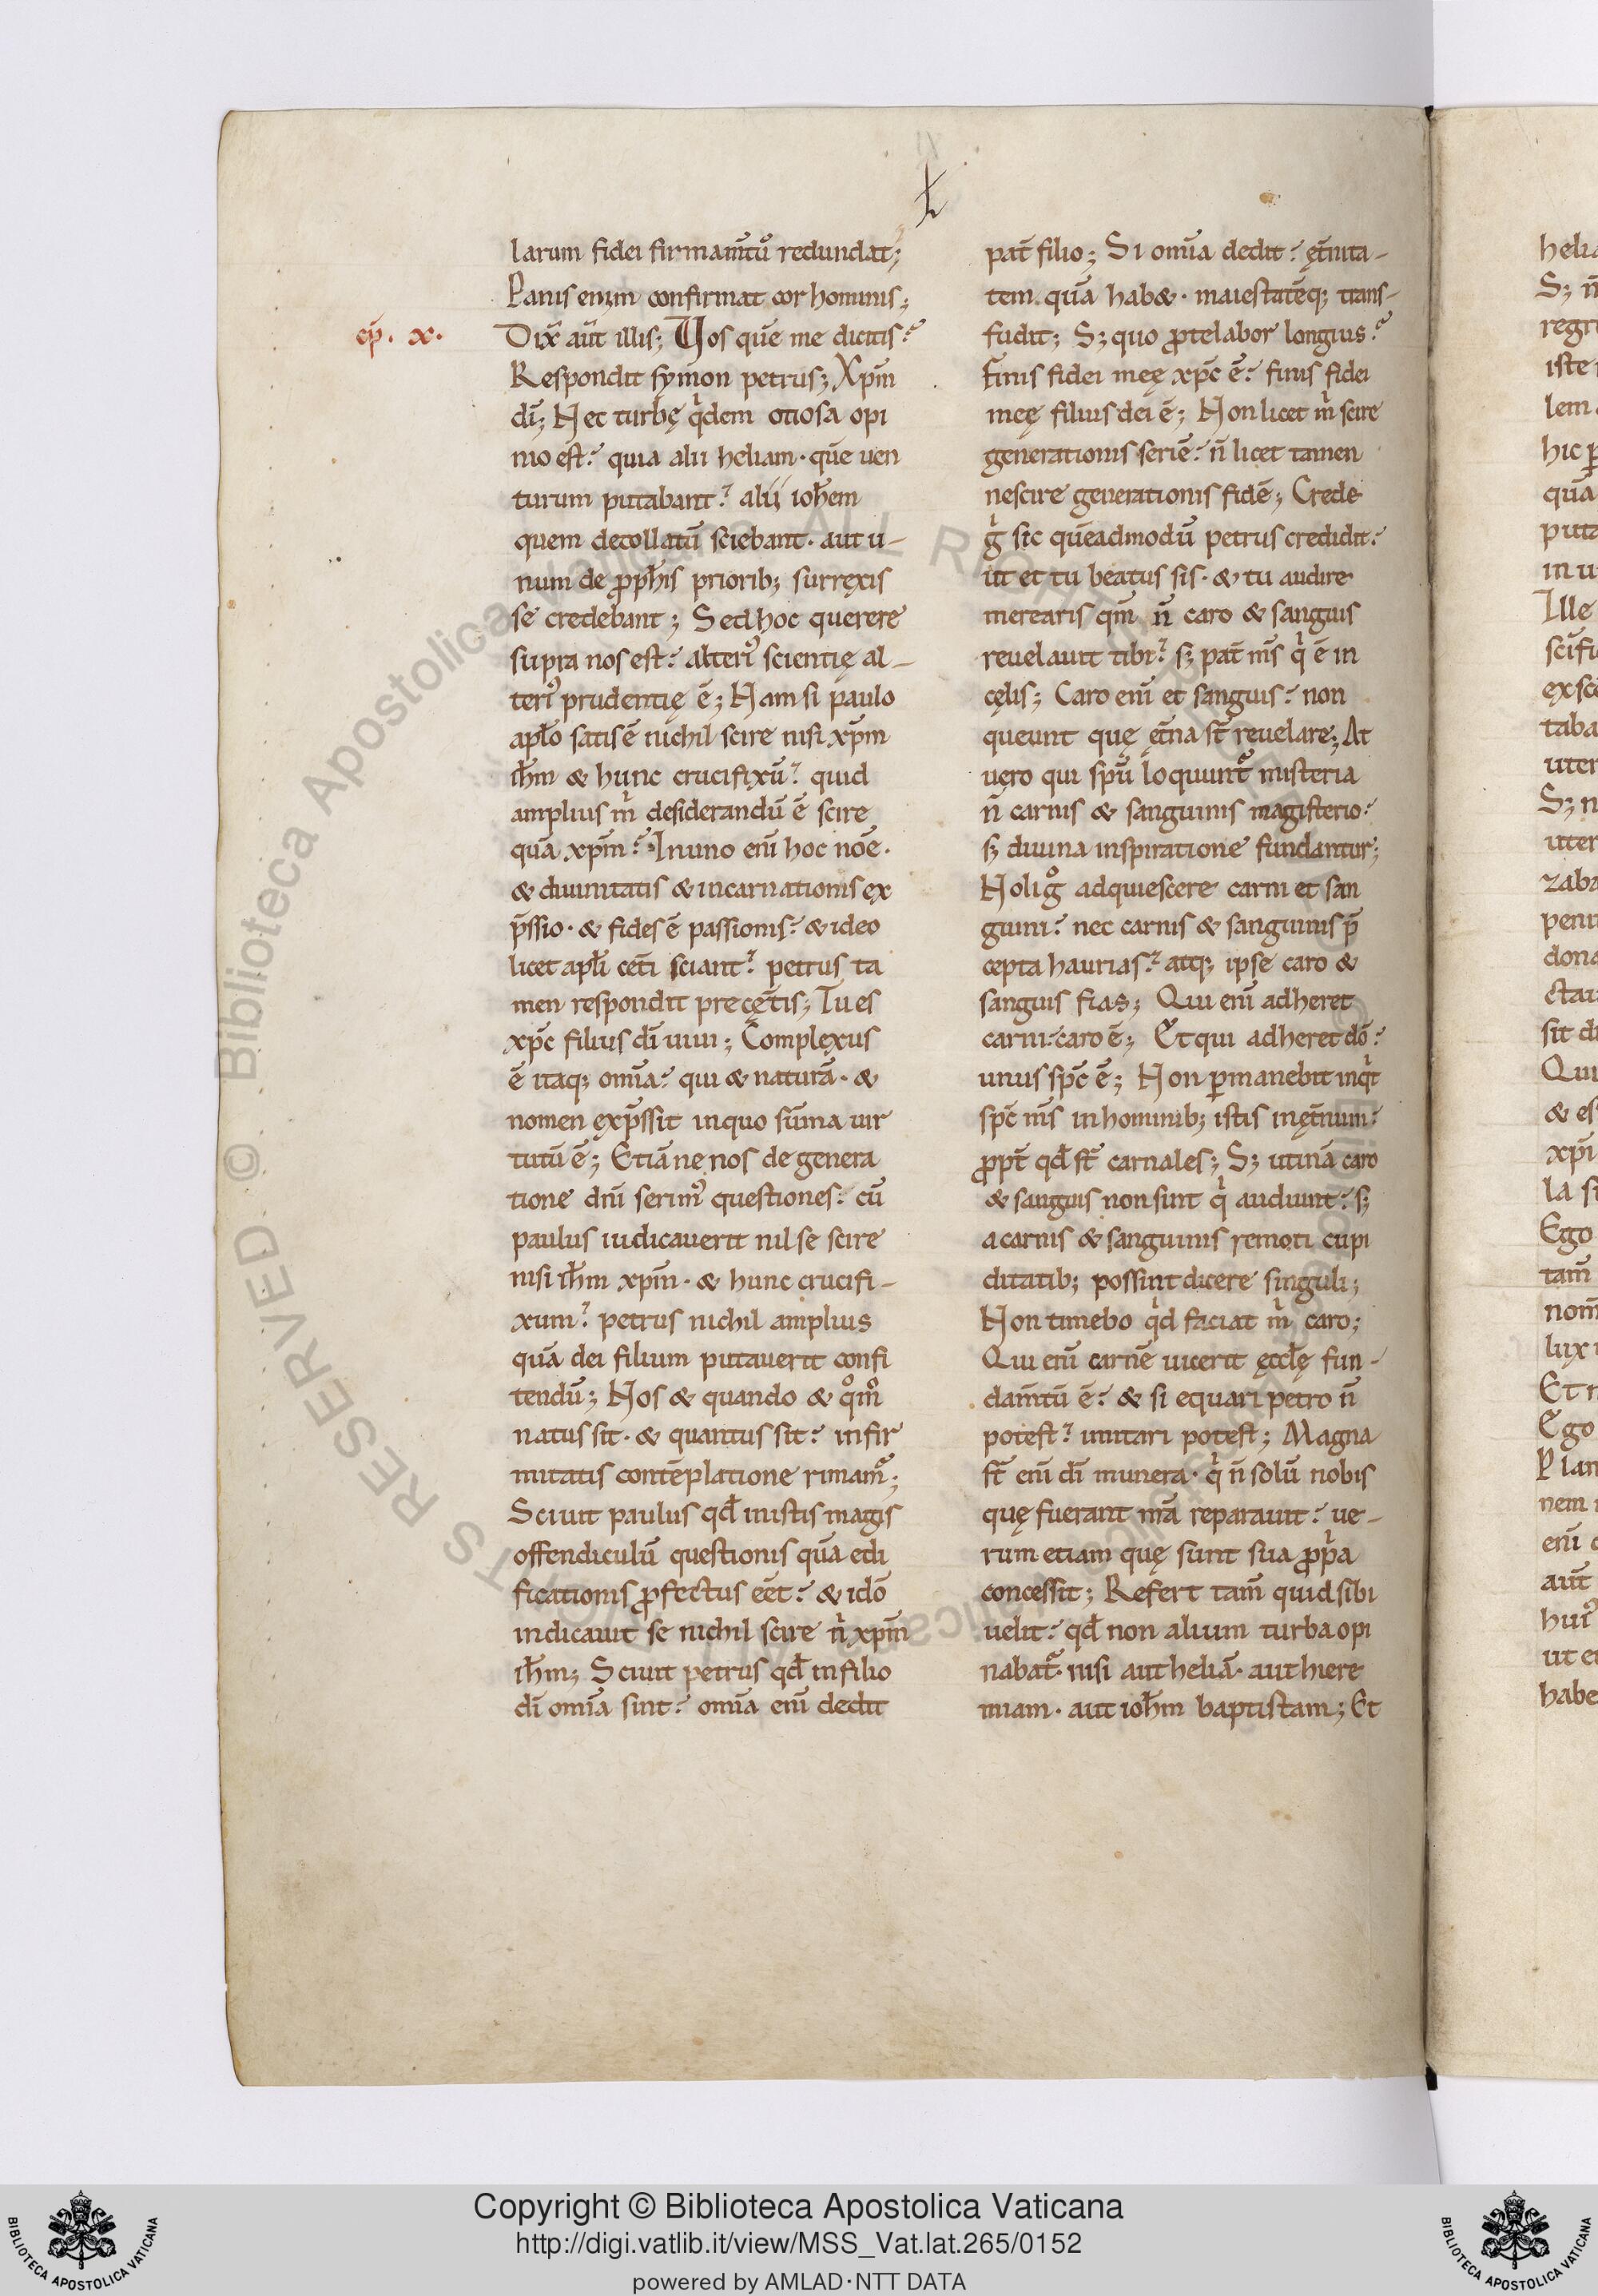 larum fidei firmam̄tū redundat᷑;
Panis enim confirmat cor hominis;
ep̄. x.
Dix̄ aūt illis; Vos quē me dicitis?
Respondit symon petrus; Xpm̄
dī; Nec turbę q̇dem otiosa opi
nio est? quia alii heliam · quē uen
turum putabant? alii ioh̄em
quem decollatū sciebant · aut u-
num de ꝓph̄is priorib; surręxis
se credebant; Sed hoc querere
supra nos est? alteri᷒ scientię al-
teri᷒ prudentię ē; Nam si paulo
apl̄o satis ē nichil scire nisi xp̄m
ih̄m & hunc crucifixū? quid
amplius ṁ desiderandū ē scire
quā xp̄m? In uno enī hoc nōe ·
& diuinitatis & incarnationis ex
p̄ssio · & fides ē passionis? & ideo
licet apl̄i cet̄i sciant? petrus ta
men respondit pre cęt̄is; Tu es
xp̄c filius dī uiui; Complexus
ē itaq; omīa? qui & naturā · &
nomen exp̄ssit in quo sūma uir
tutū ē; Etiā ne nos de genera
tione dn̄i serim᷒ questiones? cū
paulus iudicauerit nil se scire
nisi ih̄m xp̄m · & hunc crucifi-
xum? petrus nichil amplius
quā dei filium putauerit confi
tendū; Nos & quando & q̊m̊
natus sit · & quantus sit? infir
mitatis contēplatione rimam᷑;
Sciuit paulus qd̄ in istis magis
offendiculū questionis quā edi
ficationis ꝓfectus eēt? & idō
indicauit se nichil scire ṅ xp̄m
ih̄m; Sciuit petrus qd̄ in filio
dī omīa sint? omīa enī dedit
pat̄ filio; Si omīa dedit? ęt̄nita-
tem quā hab& · maiestatēq; trans-
fudit; S; quo ꝓtelabor longius?
Finis fidei meę xp̄c ē? finis fidei
meę filius dei ē; Non licet ṁ scire
generationis seriē? n̄ licet tamen
nescire generationis fidē; Crede
g̊ sic quēadmodū petrus credidit?
ut et tu beatus sis · & tu audire
merearis qm̄ n̄ caro & sanguis
reuelauit tibi? s; pat̄ m̄s q̇ ē in
cęlis; Caro enī et sanguis? non
queunt quę ęt̄na st̄ reuelare; At
uero qui spū loquunt᷑ misteria
n̄ carnis & sanguinis magisterio?
s; diuina inspiratione fundantur;
Noli g̊ adquiescere carni et san
guini? nec carnis & sanguinis p̄
cepta haurias? atq; ipse caro &
sanguis fias; Qui enī adheret
carni? caro ē; Et qui adheret dō?
unus sp̄c ē; Non ꝑmanebit inq̇t
sp̄c m̄s in hominib; istis in ęt̄num?
ꝓpt̄ qd̄ st̄ carnales; S; utinā caro
& sanguis non sint q̇ audiunt? s;
a carnis & sanguinis remoti cupi
ditatib; possint dicere singuli;
Non timebo q̇d faciat ṁ caro;
Qui enī carnē uicerit ęccl̄ę fun-
dam̄tū ē? & si equari petro n̄
potest? imitari potest; Magna
st̄ enī dī munera · q̇ n̄ solū nobis
quę fuerant nrā reparauit? ue-
rum etiam quę sunt sua ꝓṗa
concessit; Refert tam̄ quid sibi
uelit? qd̄ non alium turba opi
nabat᷑ nisi aut heliā · aut hiere
miam · aut ioh̄m baptistam; Et
helia
S; n̄
regn
iste
lem
hic p
quā
puta
in u
Ille
scīfi
ex sce
taba
uter
S; n
uter
zaba
peni
dona
ctau
sit di
Qui
& es
xp̄i
la si
Ego
tam̄
nom̄
lux
Et n
Ego
Plan
nem
enī
aūt
hui᷒
ut e
habe
Copyright © Biblioteca Apostolica Vaticana
http://digi.vatlib.it/view/MSS_Vat.lat.265/0152
powered by AMLAD·NTT DATA
BIBLIOTECA APOSTOLICA VATICANA
BIBLIOTECA APOSTOLICA VATICANA